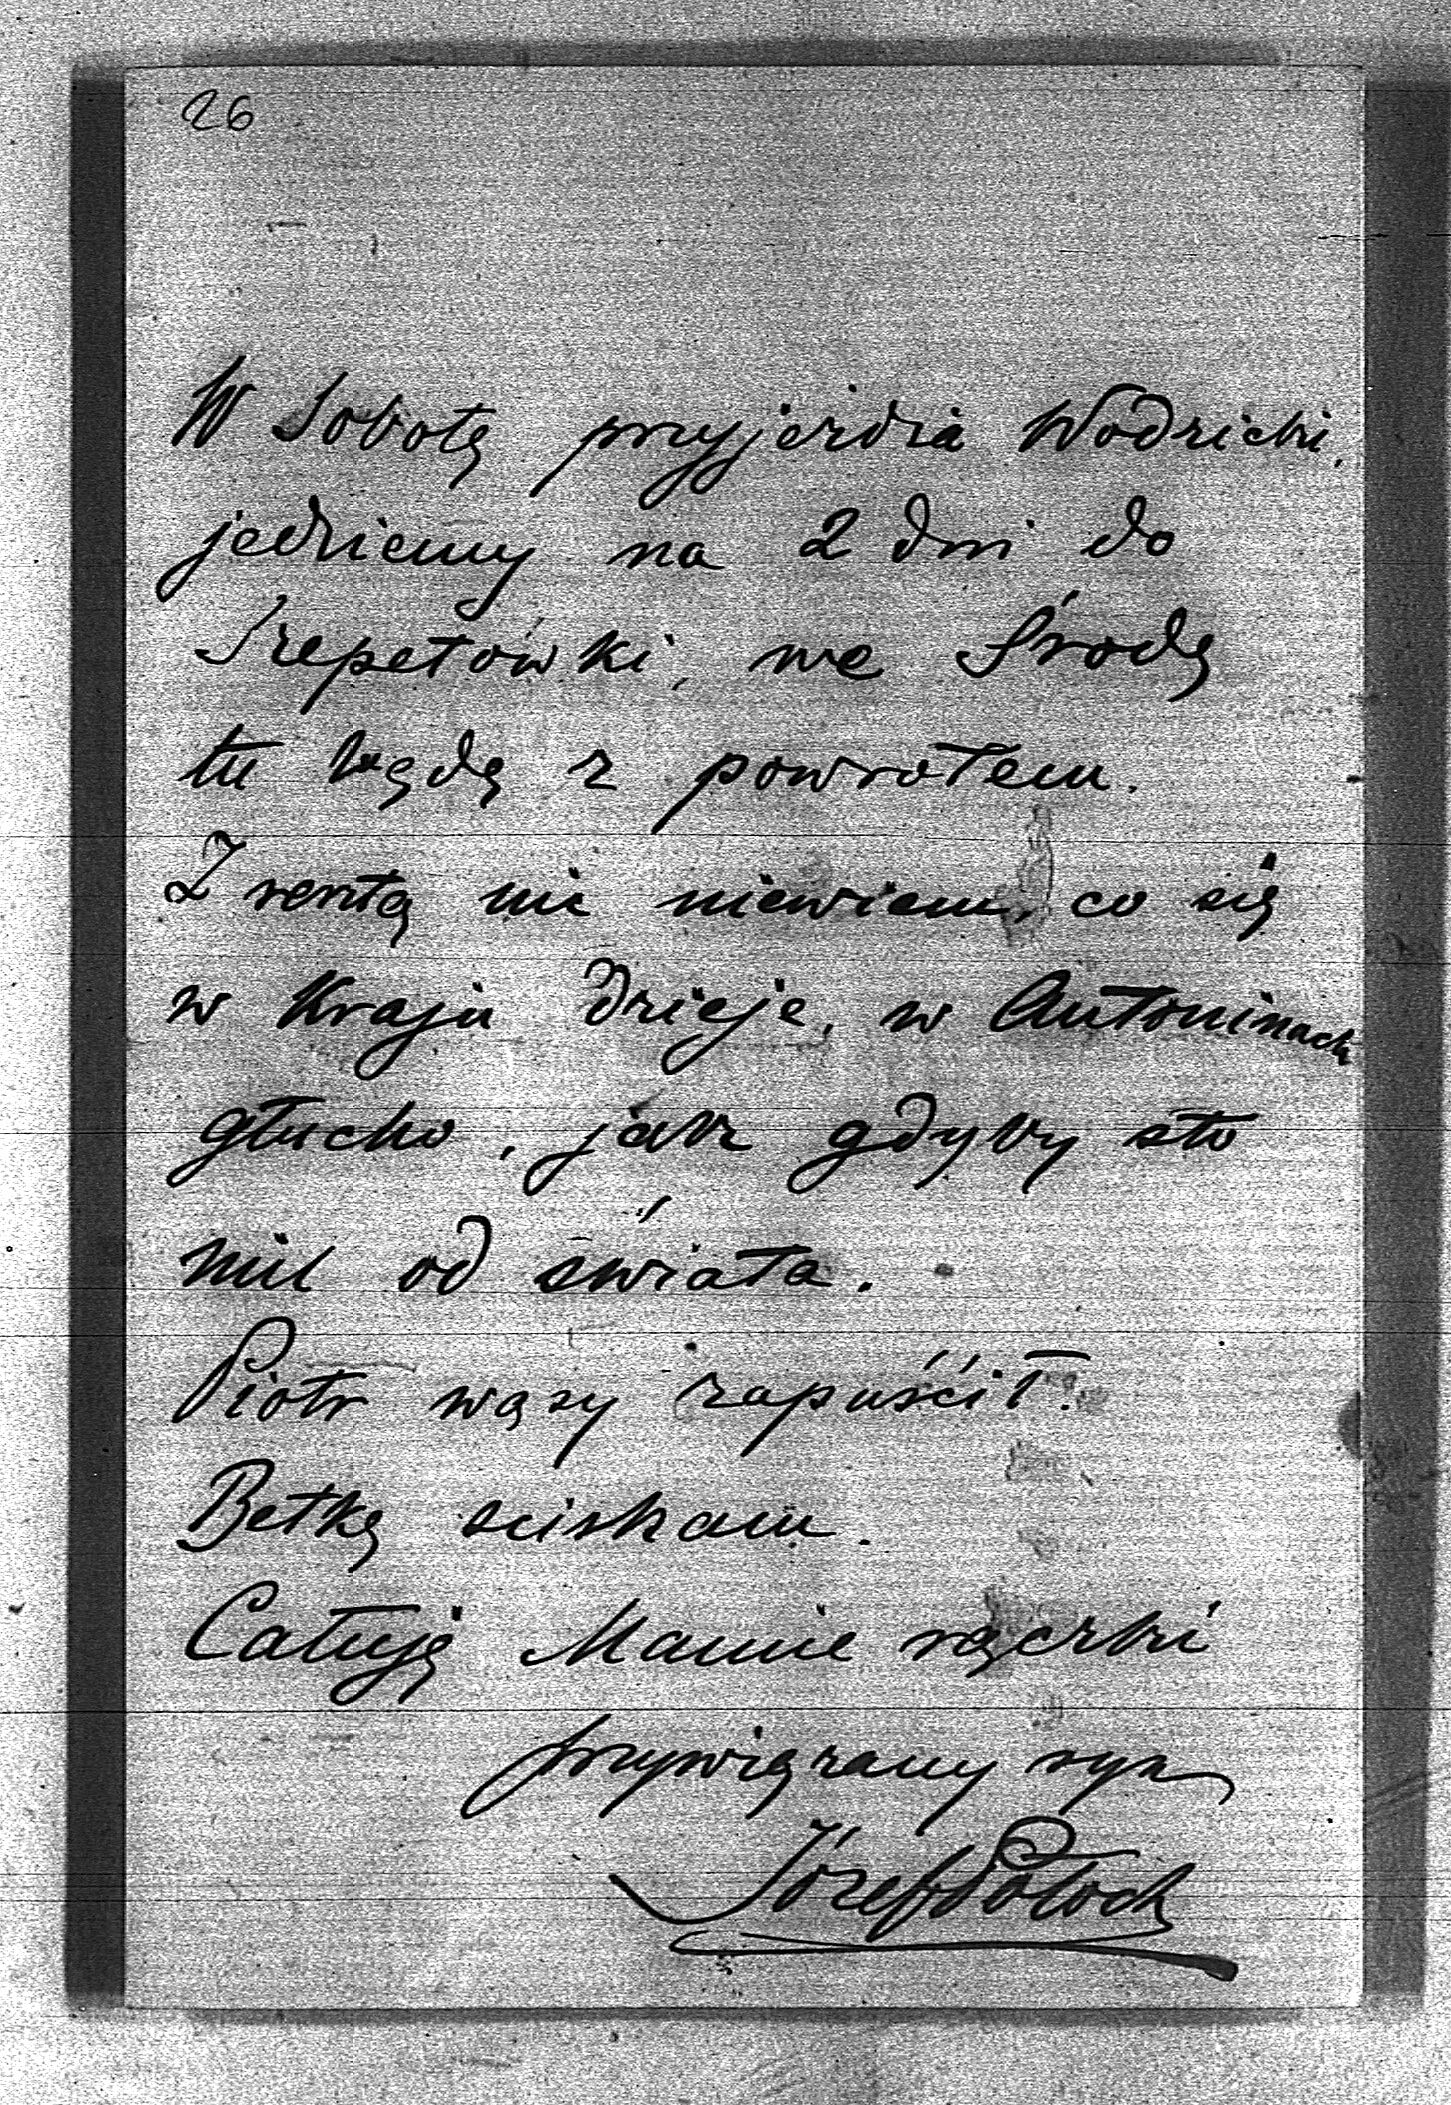 26
W Sobotę przyjeżdża Wodzicki,
jedziemy na 2 dni do
Szepetówki, we Środę
tu będę z powrotem.
Z resztą nic niewiem, co się
w Kraju dzieje, w Antoninach
głucho, jak gdyby sto
mil od świata.
Piotr wąsy zapuścił!
Betkę sciskam.
Całuję Mamie rączki
przywiązany syn
Józef Potocki